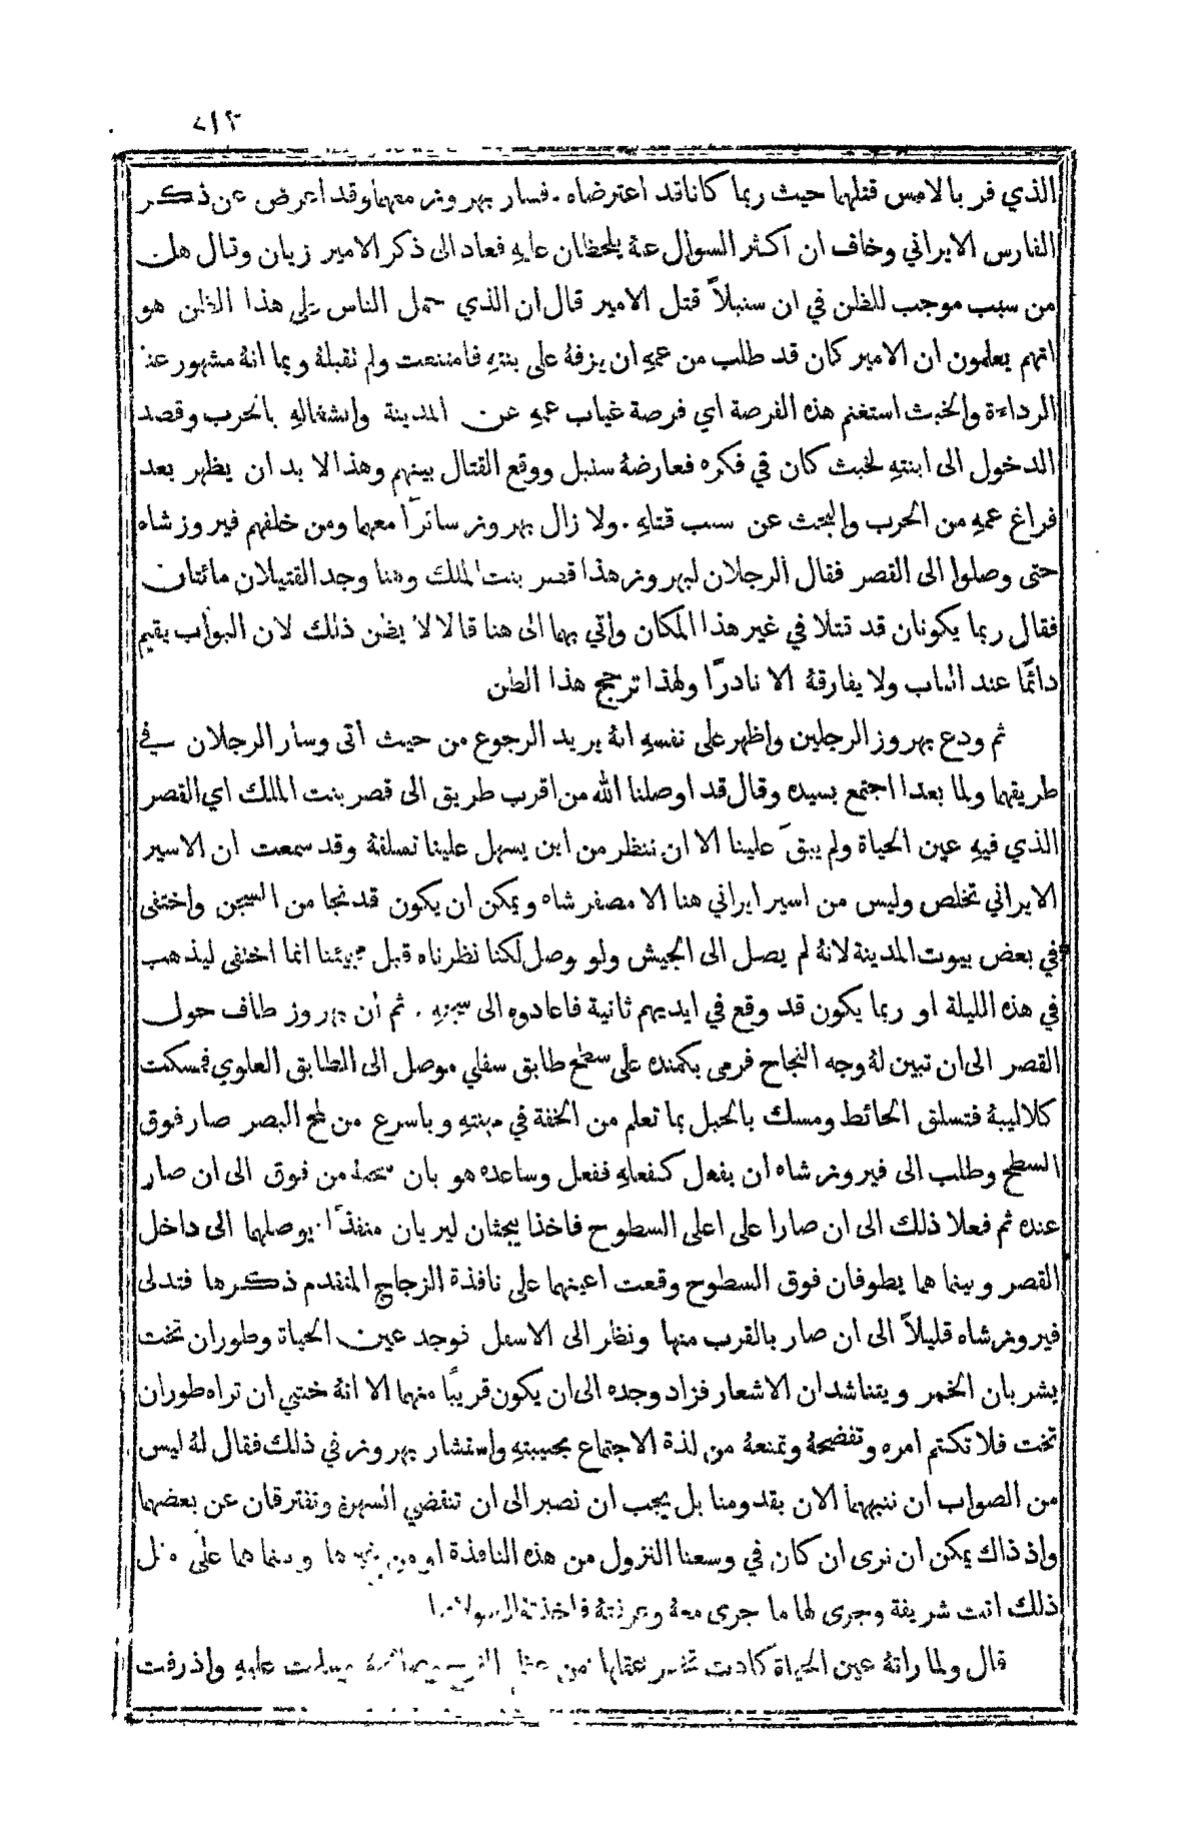 ٧١٣
الذي فر بالامس قتلهما حيث ربما كانا قد اعترضاه . فسار بهروز معهما وقد اعرض عن ذكر
الفارس الايراني وخاف ان اكثر السوال عنهُ يلحظان عليهِ فعاد الى ذكر الامير زيان وقال هل
من سبب موجب للظن في ان سنبلاً قتل الامير قال ان الذي حمل الناس على هذا الظن هو
انهم يعلمون ان الامير كان قد طلب من عمهِ ان يزفهُ على بنتهِ فامتنعت ولم نقبلهُ وبما انهُ مشهور عنهُ
الرداءة والخبث استغنم هذه الفرصة اي فرصة غياب عمهِ عن المدينة وانشغالهِ بالحرب وقصد
الدخول الى ابنتهِ لخبث كان في فكره فعارضهُ سنبل ووقع القتال بينهم وهذا لا بد ان يظهر بعد
فراغ عمهِ من الحرب والبحث عن سبب قتلهِ . ولا زال بهروز سائرًا معهما ومن خلفهم فيروز شاه
حتى وصلوا الى القصر فقال الرجلان لبهروز هذا قصر بنت الملك وهنا وجد القتيلان مائتان
فقال ربما يكونان قد قتلا في غير هذا المكان واتي بهما الى هنا قالا لا يظن ذلك لان البواب يقيم
دائمًا عند الباب ولا يفارقهُ الا نادرًا ولهذا ترجح هذا الظن
ثم ودع بهروز الرجلين واظهر على نفسهِ انهُ يريد الرجوع من حيث اتى وسار الرجلان في
طريقهما ولما بعدا اجتمع بسيده وقال قد اوصلنا الله من اقرب طريق الى قصر بنت الملك اي القصر
الذي فيهِ عين الحياة ولم يبقَ علينا الا ان ننظر من اين يسهل علينا تسلقهُ وقد سمعت ان الاسير
الايراني تخلص وليس من اسير ايراني هنا الا مصفر شاه ويمكن ان يكون قد نجا من السجن واختفى
في بعض بيوت المدينة لانهُ لم يصل الى الجيش ولو وصل لكنا نظرناه قبل مجيئنا انما اختفى ليذهب
في هذه الليلة او ربما يكون قد وقع في ايديهم ثانية فاعادوه الى سجنهِ . ثم ان بهروز طاف حول
القصر الى ان تبين لهُ وجه النجاح فرمى بكمنده على سطح طابق سفلي موصل الى الطابق العلوي فمسكت
كلاليبهُ فتسلق الحائط ومسك بالحبل بما تعلم من الخفة في مهنتهِ وباسرع من لمح البصر صار فوق
السطح وطلب الى فيروز شاه ان يفعل كفعلهِ ففعل وساعده هو بان من فوق الى ان صار
عنده ثم فعلا ذلك الى ان صارا على اعلى السطوح فاخذا يبحثان ليريان منفذًا يوصلهما الى داخل
القصر وبينما هما يطوفان فوق السطوح وقعت اعينهما على نافذة الزجاج المتقدم ذكرها فتدلى
فيروز شاه قليلاً الى ان صار بالقرب منها ونظر الى الاسفل فوجد عين الحياة وطوران تخت
يشربان الخمر ويتناشدان الاشعار فزاد وجده الى ان يكون قريبًا منهما الا انهُ خشي ان تراه طوران
تخت فلا تكتم امره وتفضحهُ وتمنعهُ من لذة الاجتماع بحبيبتهِ واستشار بهروز في ذلك فقال لهُ ليس
من الصواب ان ننبههما الان بقدومنا بل يجب ان نصبر الى ان تنقضي السهرة وتفترقان عن بعضهما
واذ ذاك يمكن ان نرى ان كان في وسعنا النزول من هذه النافذة او من غيرها وبينما هما على مثل
ذلك اتت شريفة وجرى لها ما جرى معهُ وعرفتهُ فاخذتهُ
قال ولما راتهُ عين الحياة كادت عقلها من عظم الفرح وسلمت عليهِ واذ رفت